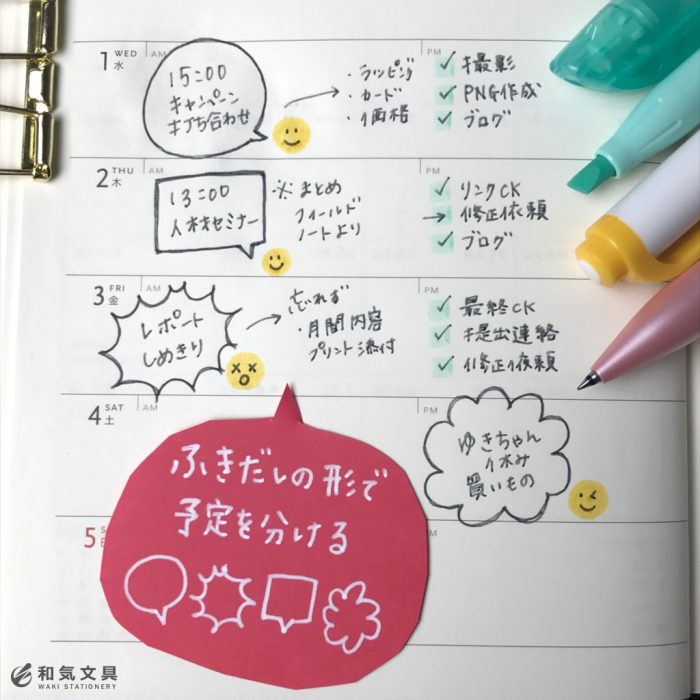 1 WED 水
AM
15:00
キャンペーン
打ち合わせ
・ラッピング
・カード
・価格
PM
✓ 撮影
✓ PNG作成
✓ ブログ
2 THU 木
AM
13:00
人材セミナー
※まとめ
フィールド
ノートより
PM
✓ リンクCK
→ 修正依頼
✓ ブログ
3 FRI 金
AM
レポート
しめきり
忘れず
・月間内容
プリント添付
PM
✓ 最終CK
✓ 提出連絡
✓ 修正依頼
4 SAT 土
AM
PM
ゆきちゃん
休み
買いもの
ふきだしの形で
予定を分ける
5
PM
和気文具
WAKI STATIONERY